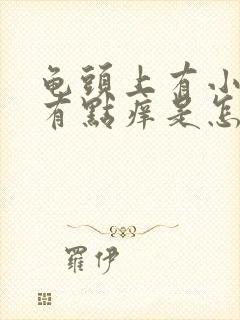 龟頭上有小
有點痒是怎
羅伊